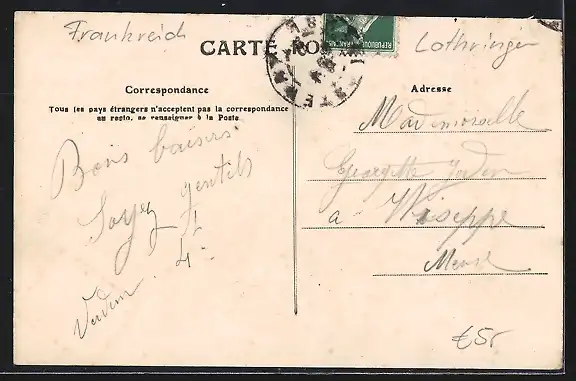 Frankreich
Lothringen
CARTE
REPUBLIQUE FRANÇAISE
Correspondance
Tous les pays étrangers n'acceptent pas la correspondance
au recto, se renseigner à la Poste
Bons baisers
Soyez gentils
Verdun
Adresse
Mademoiselle
Georgette
a Wiseppe
Meuse
€5,-